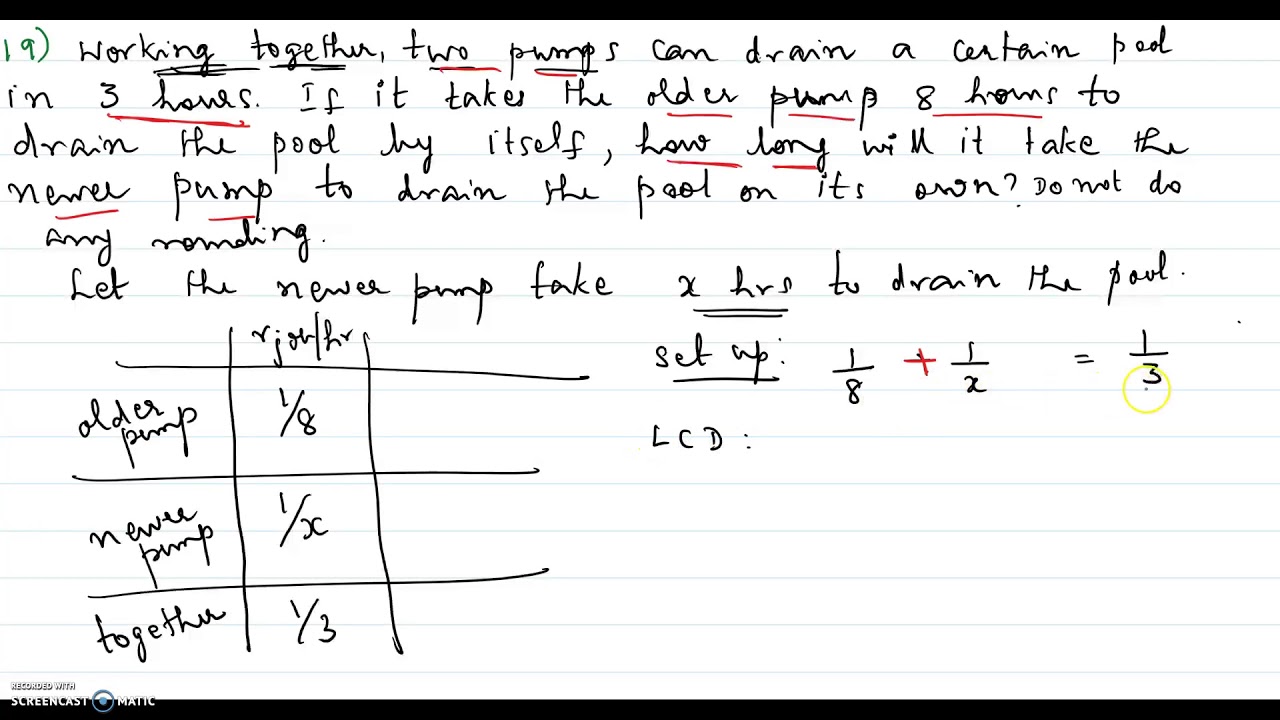 19) Working together, two pumps can drain a certain pool
in 3 hours. If it takes the older pump 8 hours to
drain the pool by itself, how long will it take the
newer pump to drain the pool on its own? Do not do
any rounding.
Let the newer pump take x hrs to drain the pool.
r job/hr
older pump 1/8
newer pump 1/x
together 1/3
Set up: 1/8 + 1/x = 1/3
LCD:
RECORDED WITH
SCREENCAST MATIC